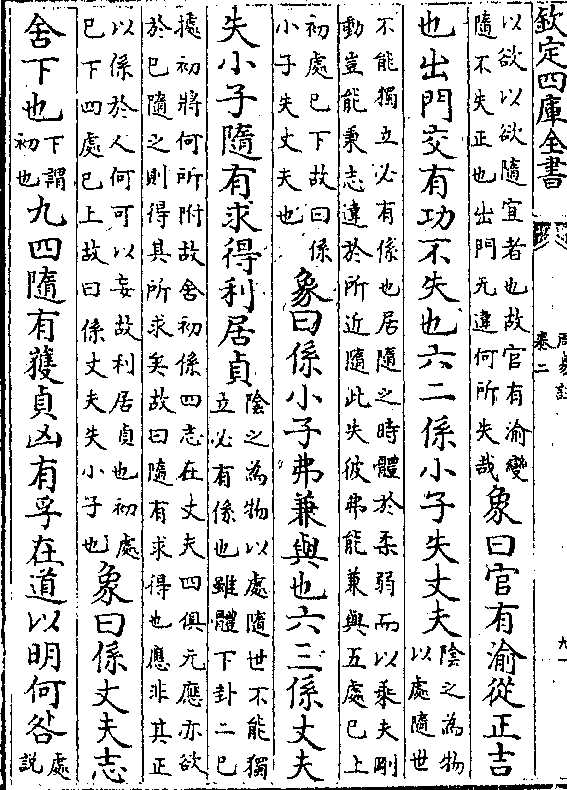 欽定四庫全書
周易註
卷二
九
以欲以欲隨宜者也故官有渝變
隨不失正也出門无違何所失哉
象曰官有渝從正吉
也出門交有功不失也六二係小子失丈夫
陰之為物
以處隨世
不能獨立必有係也居隨之時體於柔弱而以乘夫剛
動豈能秉志違於所近隨此失彼弗能兼與五處已上
初處已下故曰係
小子失丈夫也
象曰係小子弗兼與也六三係丈夫
失小子隨有求得利居貞
陰之為物以處隨世不能獨
立必有係也雖體下卦二已
據初將何所附故舍初係四志在丈夫四俱无應亦欲
於已隨之則得其所求矣故曰隨有求得也應非其正
以係於人何可以妄故利居貞也初處
已下四處已上故曰係丈夫失小子也
象曰係丈夫志
舍下也
下謂
初也
九四隨有獲貞凶有孚在道以明何咎
處
説